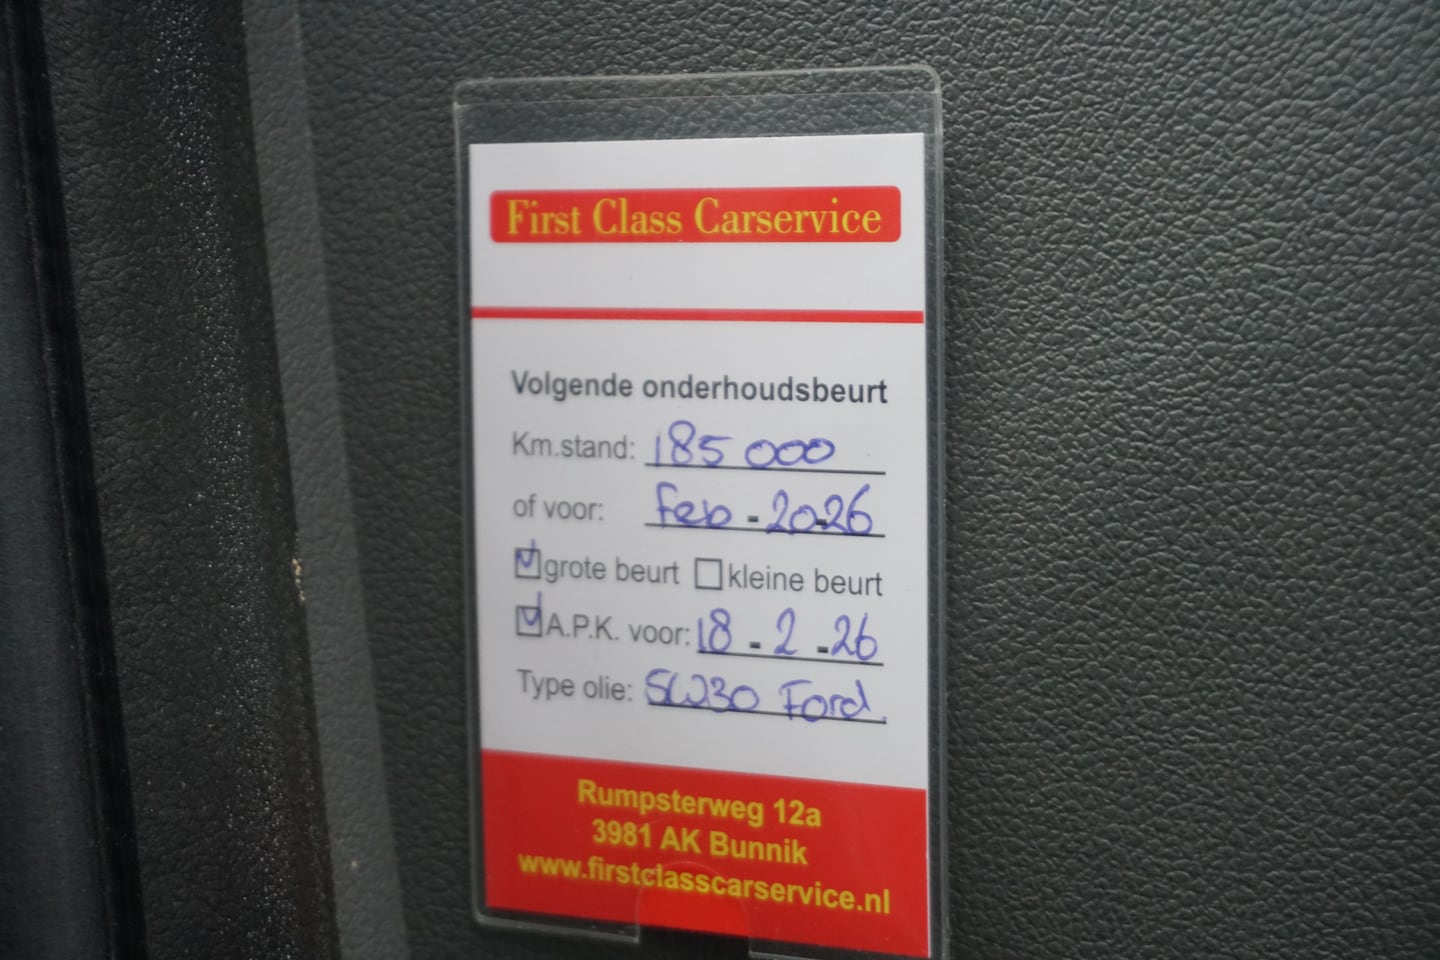 First Class Carservice
Volgende onderhoudsbeurt
Km.stand: 185 000
of voor: Feb - 2026
grote beurt kleine beurt
A.P.K. voor: 18 - 2 - 26
Type olie: 5W30 Ford.
Rumpsterweg 12a
3981 AK Bunnik
www.firstclasscarservice.nl